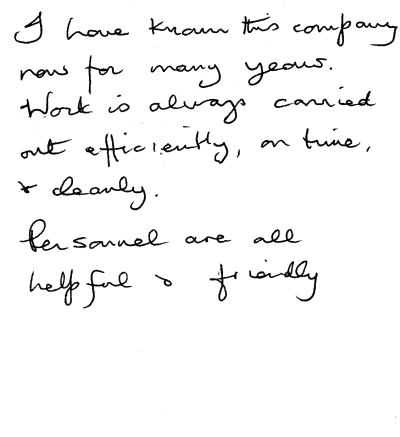 I have known this company
now for many years.
Work is always carried
out efficiently, on time,
& cleanly.
Personnel are all
helpful & friendly